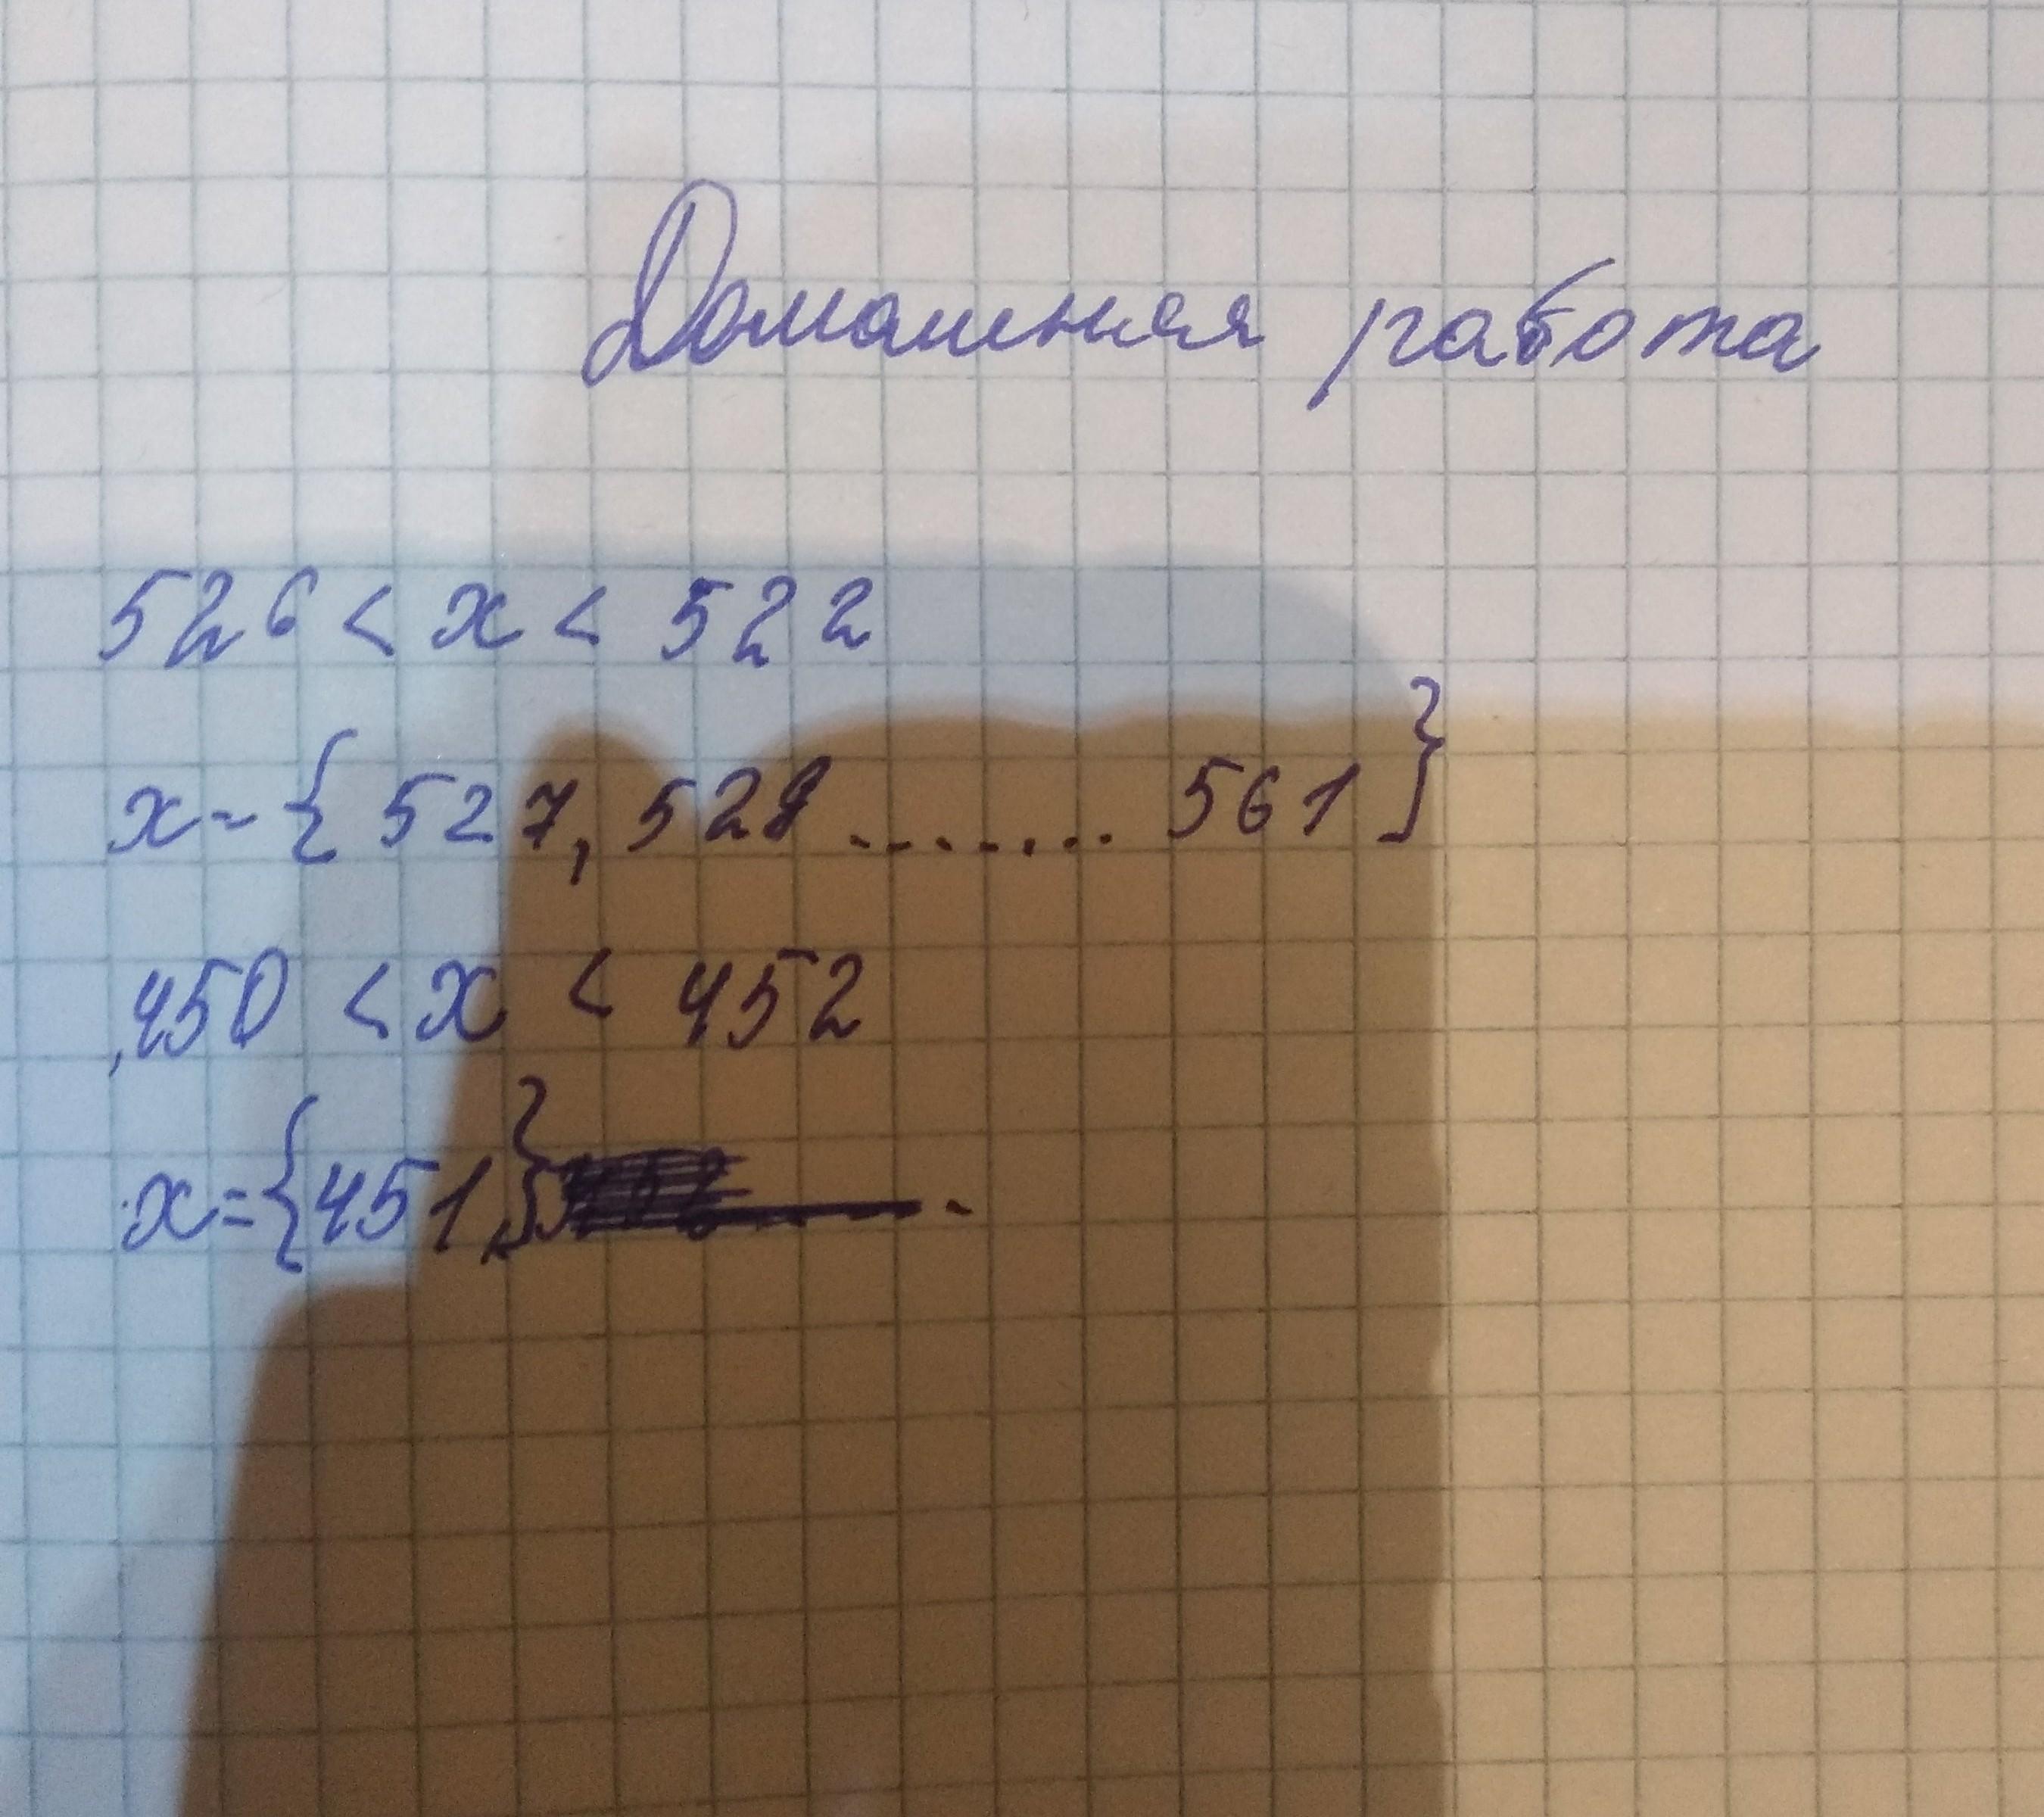 Домашняя работа
526 < x < 522
x = { 527, 528 ........ 561 }
450 < x < 452
x = { 451 }